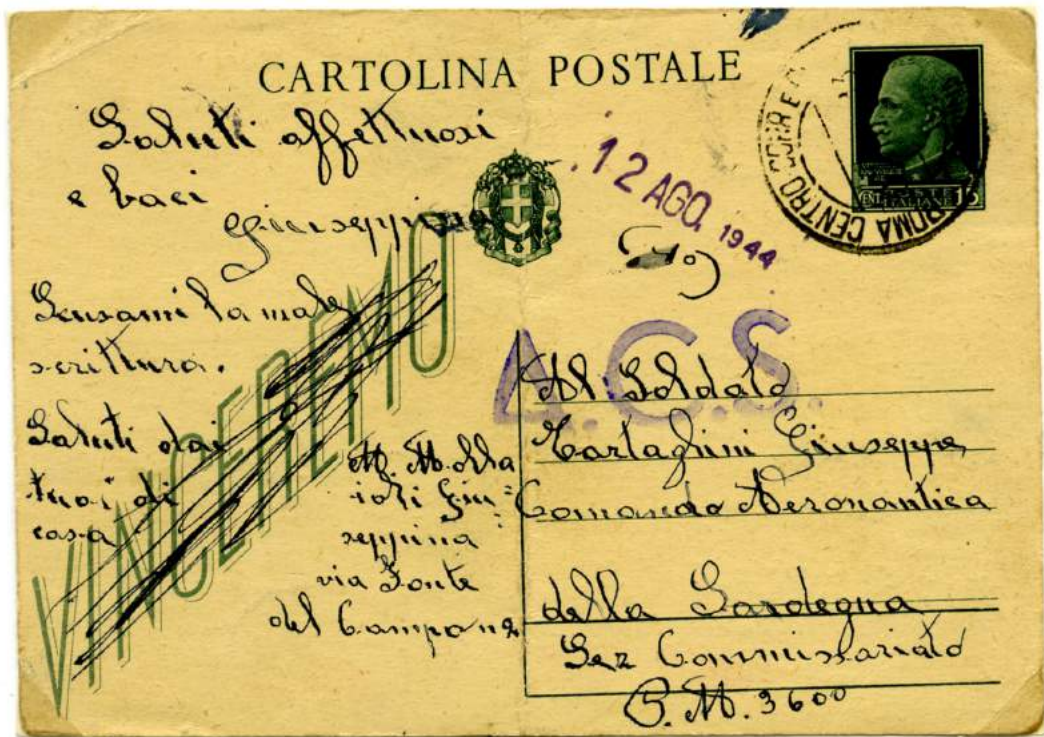 CARTOLINA POSTALE
Saluti affettuosi
e baci
Giuseppina
Scusami la mala
scrittura.
Saluti dai
tuoi di
casa
VINCEREMO
12 AGO. 1944
ROMA CENTRO CORR
CENT. 15
A.C.S.
M. M.
Giu=
seppina
via Fonte
del Campo
Al Soldato
Tartaglini Giuseppe
Comando Aeronautica
della Sardegna
Sez Commissariato
P.M. 3600